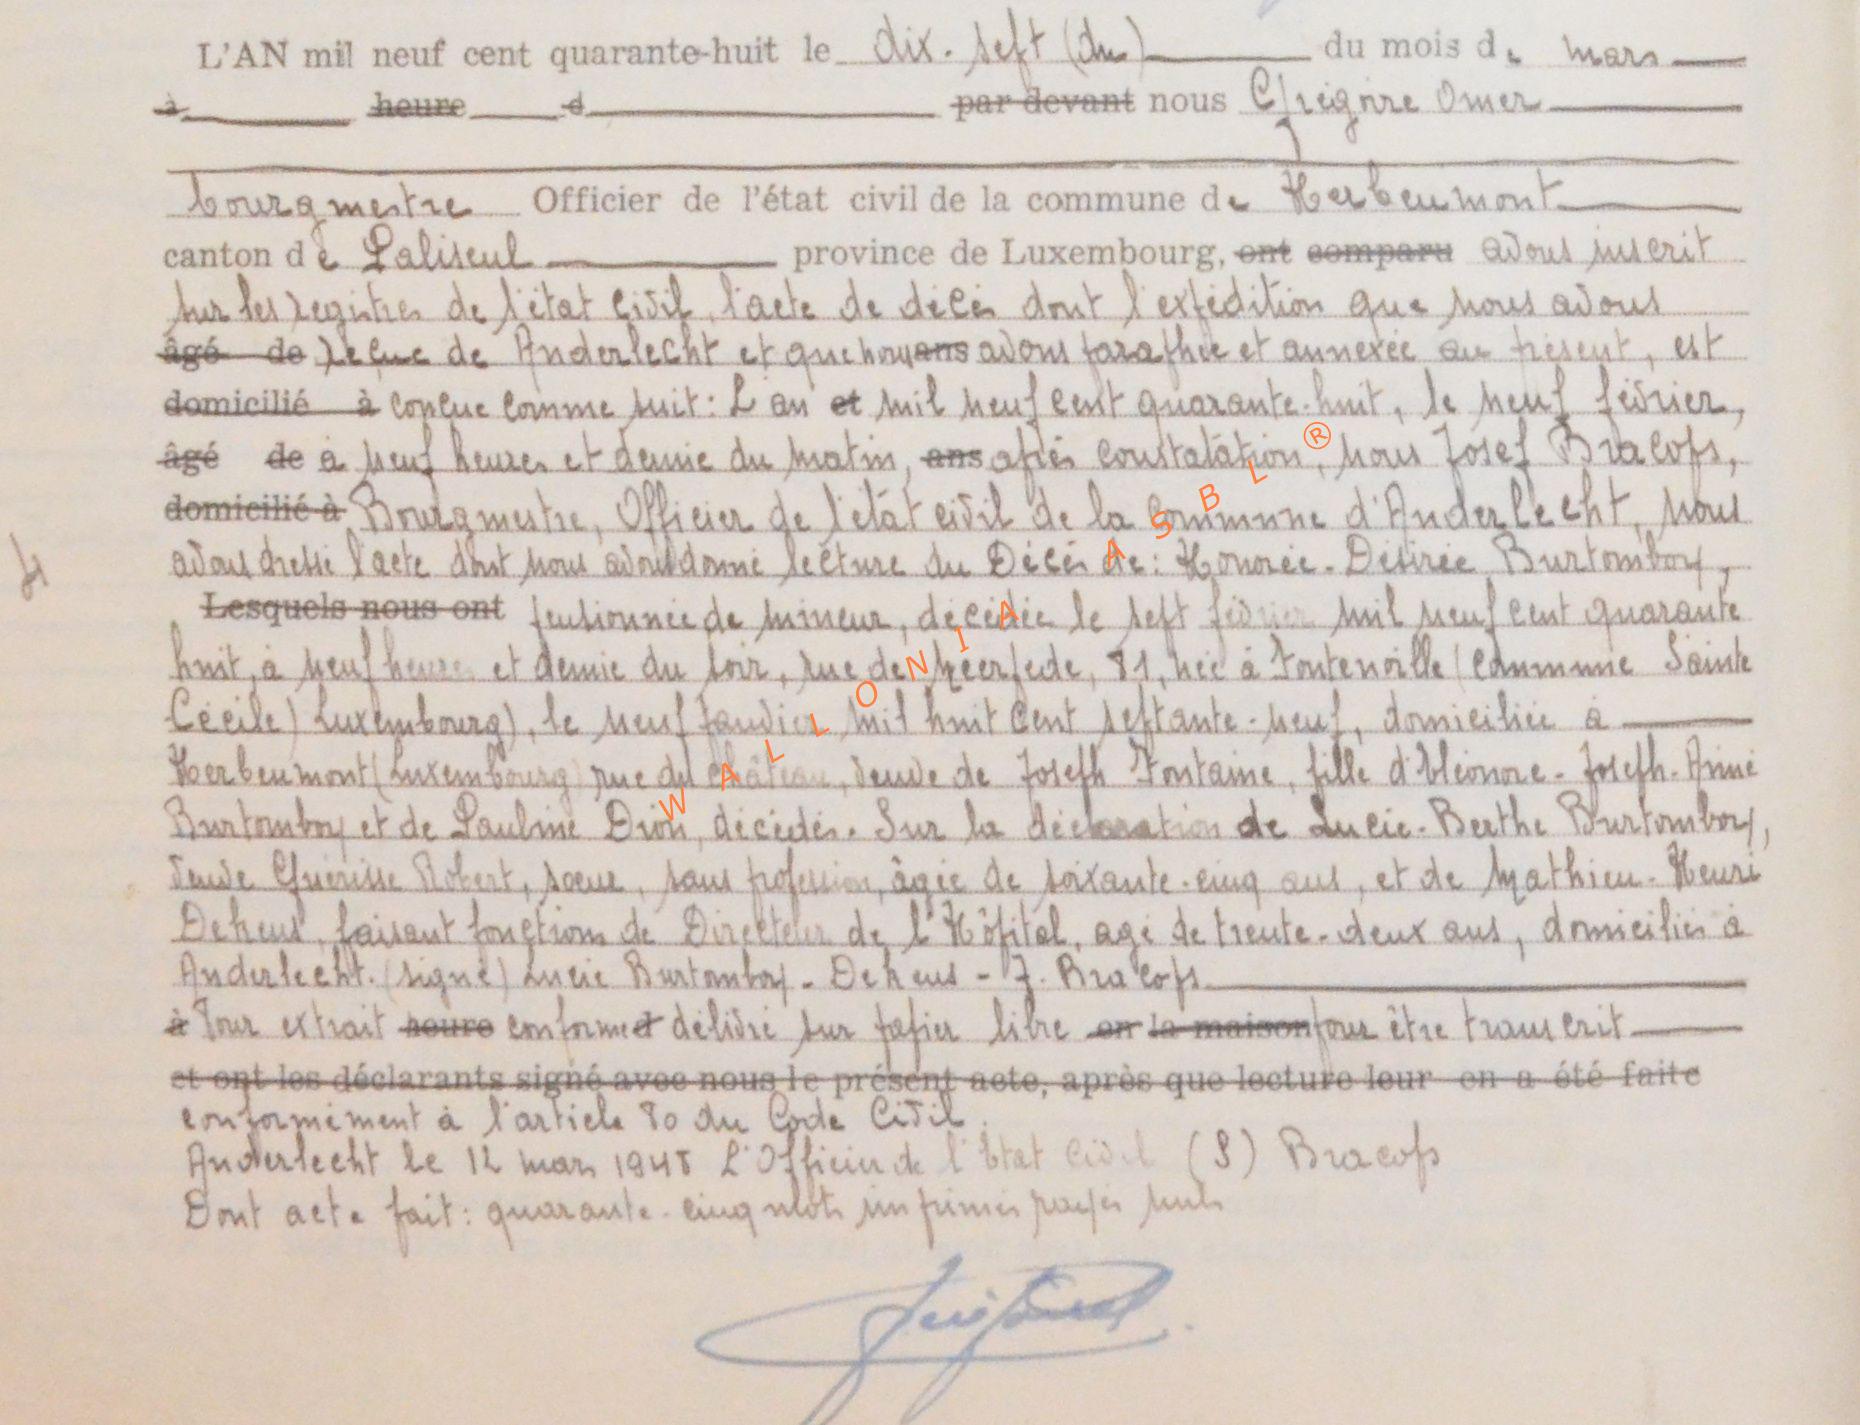 L'AN mil neuf cent quarante-huit le dix-sept (du) du mois de mars
à heure d par devant nous Grégoire Omer
bourgmestre Officier de l'état civil de la commune de Herbeumont
canton de Paliseul province de Luxembourg, ont comparu avons inscrit
sur les registres de l'état civil, l'acte de décès dont l'expédition que nous avons
âgé de reçue de Anderlecht et que nous ans avons paraphée et annexée au présent, est
domicilié à conçue comme suit : L'an et mil neuf cent quarante-huit, le neuf février,
âgé de à neuf heures et demie du matin, ans après constatation, nous Josef Bracops,
domicilié à Bourgmestre, Officier de l'état civil de la Commune d'Anderlecht, nous
avons dressé l'acte dont nous avons donné lecture du Décès de : Honorée-Désirée Burtomboy,
Lesquels nous ont pensionnée de mineur, décédée le sept février mil neuf cent quarante
huit, à neuf heures et demie du soir, rue de Meerpede, 81, née à Fontenoille (Commune Sainte
Cécile) Luxembourg), le neuf janvier mil huit cent septante-neuf, domiciliée à
Herbeumont (Luxembourg) rue du Château, veuve de Joseph Fontaine, fille d'Eléonore-Joseph-Aimé
Burtomboy et de Pauline Dion, décédés. Sur la déclaration de Lucie-Berthe Burtomboy,
veuve Guérisse Robert, soeur, sans profession, âgée de soixante-cinq ans, et de Mathieu-Henri
Deheus, faisant fonctions de Directeur de l'Hôpital, agé de trente-deux ans, domiciliés à
Anderlecht. (signé) Lucie Burtomboy - Deheus - J. Bracops
à Pour extrait heure conforme d délivré sur papier libre en la maison pour être transcrit
et ont les déclarants signé avec nous le présent acte, après que lecture leur en a été faite
conformément à l'article 80 du Code Civil.
Anderlecht le 12 mars 1948 L'Officier de l'Etat Civil (S) Bracops
Dont acte fait : quarante-cinq mots imprimés rayés nuls
WALLONIA ASBL ®